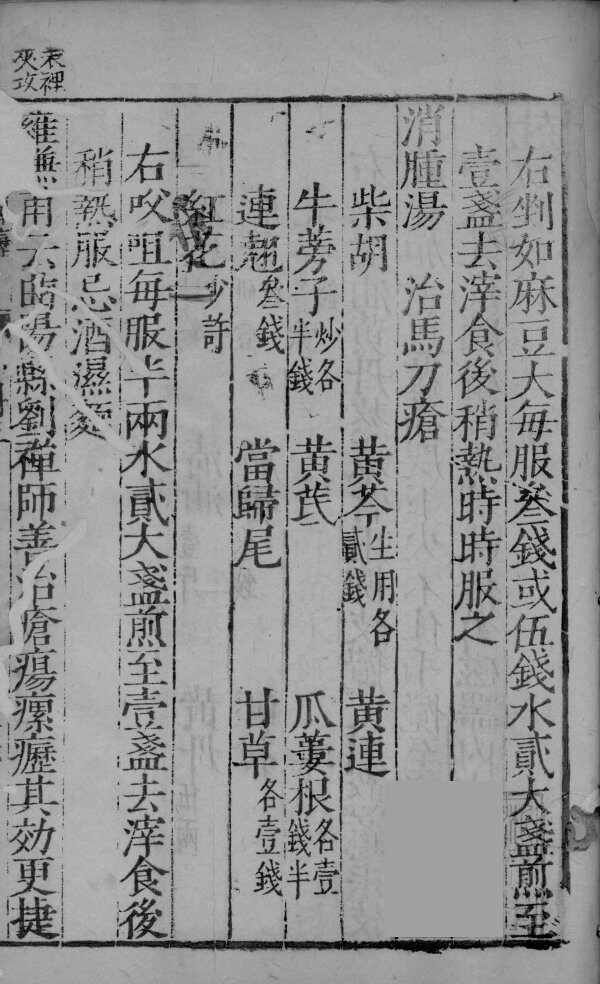 表裡
夾攻
右剉如麻豆大每服叁錢或伍錢水貳大盞煎至
壹盞去滓食後稍熱時時服之
消腫湯　治馬刀瘡
柴胡　黃芩生用各貳錢　黃連
牛蒡子炒各半錢　黃芪　瓜蔞根各壹錢半
連翹叁錢　當歸尾　甘草各壹錢
紅花少許
右㕮咀每服半兩水貳大盞煎至壹盞去滓食後
稍熱服忌酒濕麵
云臨陽縣劉禪師善治瘡瘍瘰癧其効更捷